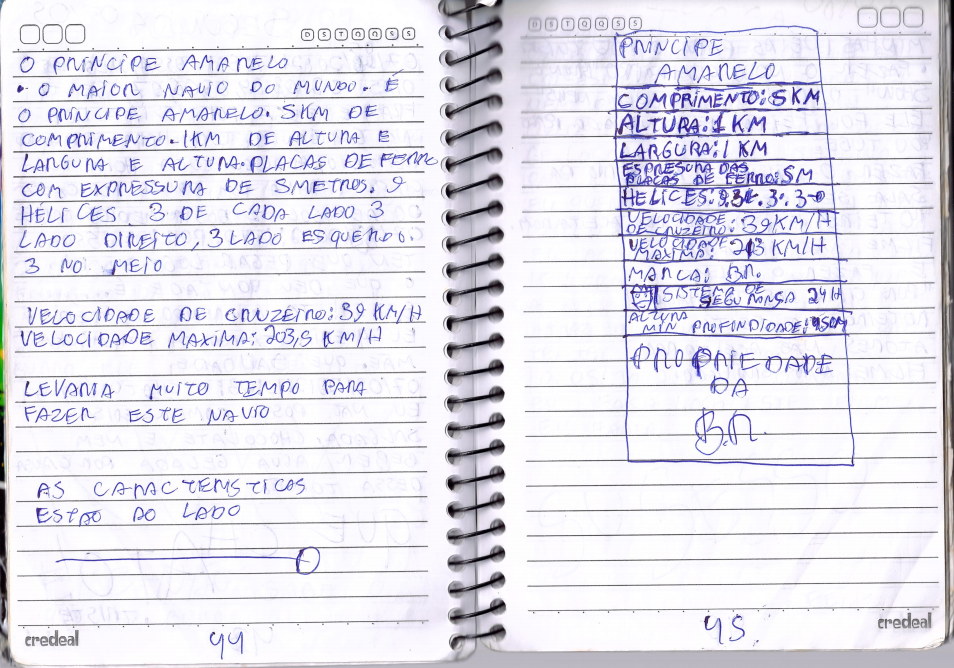 D S T Q Q S S
O PRINCIPE AMARELO
• O MAIOR NAVIO DO MUNDO. É
O PRINCIPE AMARELO. 5KM DE
COMPRIMENTO. 1KM DE ALTURA E
LARGURA E ALTURA. PLACAS DE FERRO
COM EXPRESSURA DE 5METROS. 9
HÉLICES 3 DE CADA LADO 3
LADO DIREITO, 3 LADO ESQUERDO.
3 NO MEIO
VELOCIDADE DE CRUZEIRO: 39 KM/H
VELOCIDADE MAXIMA: 203,5 KM/H
LEVARIA MUITO TEMPO PARA
FAZER ESTE NAVIO
AS CARACTERISTICAS
ESTÃO AO LADO
credeal
44
D S T Q Q S S
PRINCIPE
AMARELO
COMPRIMENTO: 5 KM
ALTURA: 1 KM
LARGURA: 1 KM
ESPRESURA DAS
PLACAS DE FERRO: 5M
HELICES: 9 3. 3. 3
VELOCIDADE
DE CRUZEIRO: 39KM/H
VELOCIDADE
MAXIMA: 203 KM/H
MARCA: B.R.
SISTEMA DE
SEGURANSA 24H
ALTURA
MIN PROFINDIDADE: 450M
PROPRIEDADE
DA
B.R.
45
credeal